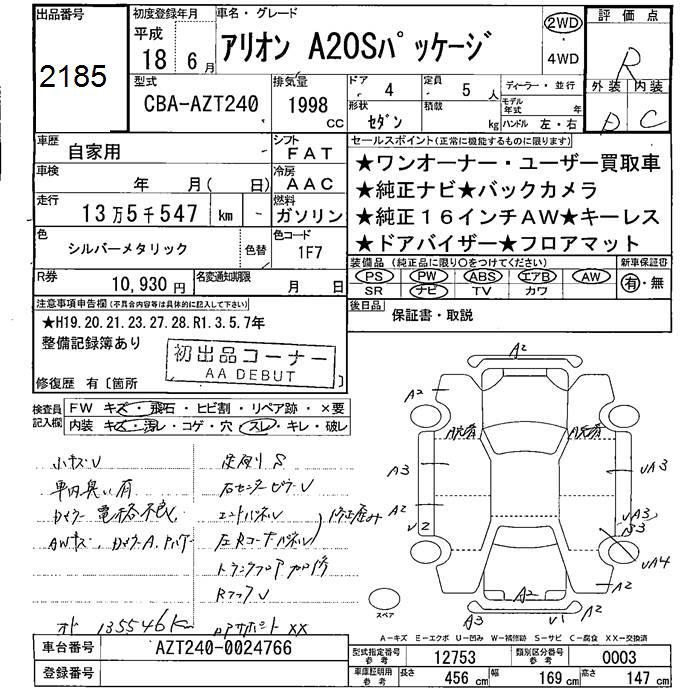 出品番号
2185
初度登録年月
平成
18 6月
車名・グレード
アリオン A20Sパッケージ
2WD
4WD
評価点
R
外装 内装
D C
型式
CBA-AZT240
排気量
1998 CC
ドア
4
定員
5 人
形状
セダン
積載
kg
ディーラー・並行
モデル年式 年
ハンドル 左・右
車歴
自家用
シフト
FAT
車検
年 月( 日)
冷房
AAC
走行
13万5千547 km -
燃料
ガソリン
色
シルバーメタリック
色替
色コード
1F7
R券
10,930円
名変通知期限
月 日
セールスポイント(正常に機能するものに限ります)
★ワンオーナー・ユーザー買取車
★純正ナビ★バックカメラ
★純正16インチAW★キーレス
★ドアバイザー★フロアマット
装備品(純正品に限り○をつけてください)
PS PW ABS エアB AW
SR ナビ TV カワ
新車保証書
有・無
後日品
保証書・取説
注意事項申告欄(不具合内容等は具体的に記入して下さい)
★H19.20.21.23.27.28.R1.3.5.7年
整備記録簿あり
初出品コーナー
AA DEBUT
修復歴 有〔箇所 〕
検査員記入欄
FW キズ・飛石・ヒビ割・リペア跡・×要
内装 キズ・汚レ・コゲ・穴・スレ・キレ・破レ
小キズV
車内臭い有
ドアミラー電格不良
足廻りS
右センターピラーV
エンドパネル
左Rコーナーパネル
修正歪み
トランクフロア
RフロアV
135546km
XX
A2
A2
A3
A2
V2
UA3
UA3
B3
UA4
A2
A2
A3
V1
A2
スペア
A-キズ E-エクボ U-凹み W-補修跡 S-サビ C-腐食 XX-交換済
車台番号
AZT240-0024766
登録番号
型式指定番号 参考
12753
類別区分番号 参考
0003
車庫証明用 参考
長さ 456 cm 幅 169 cm 高さ 147 cm